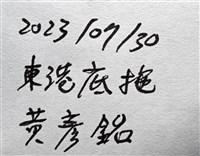 2023/09/30
東港底拖
黃彥銘